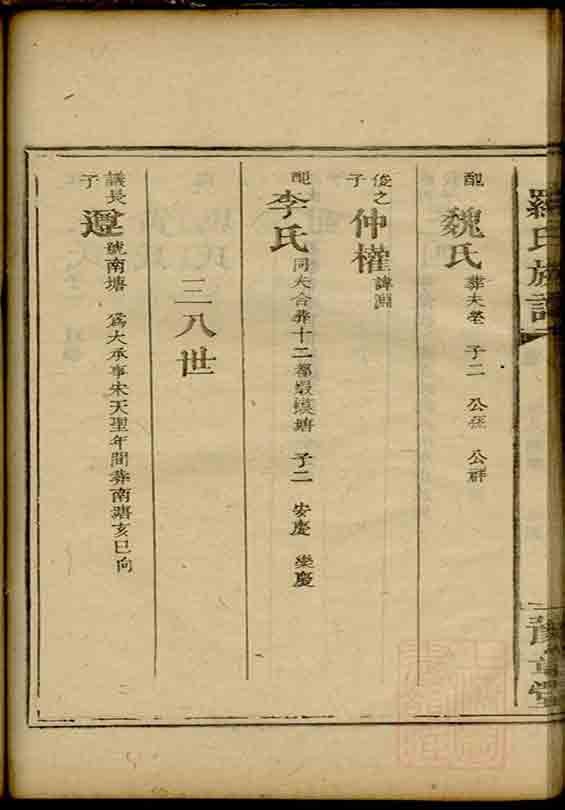 羅氏族譜
豫章堂
配 魏氏 葬夫塋 子二 公孫 公群
俊之子 仲權 諱淵
配 李氏 同夫合葬十二都蝦蟆塘 子二 安慶 燮慶
三八世
議長子 遵 號南塘 為大承事宋天聖年間葬南塘亥巳向